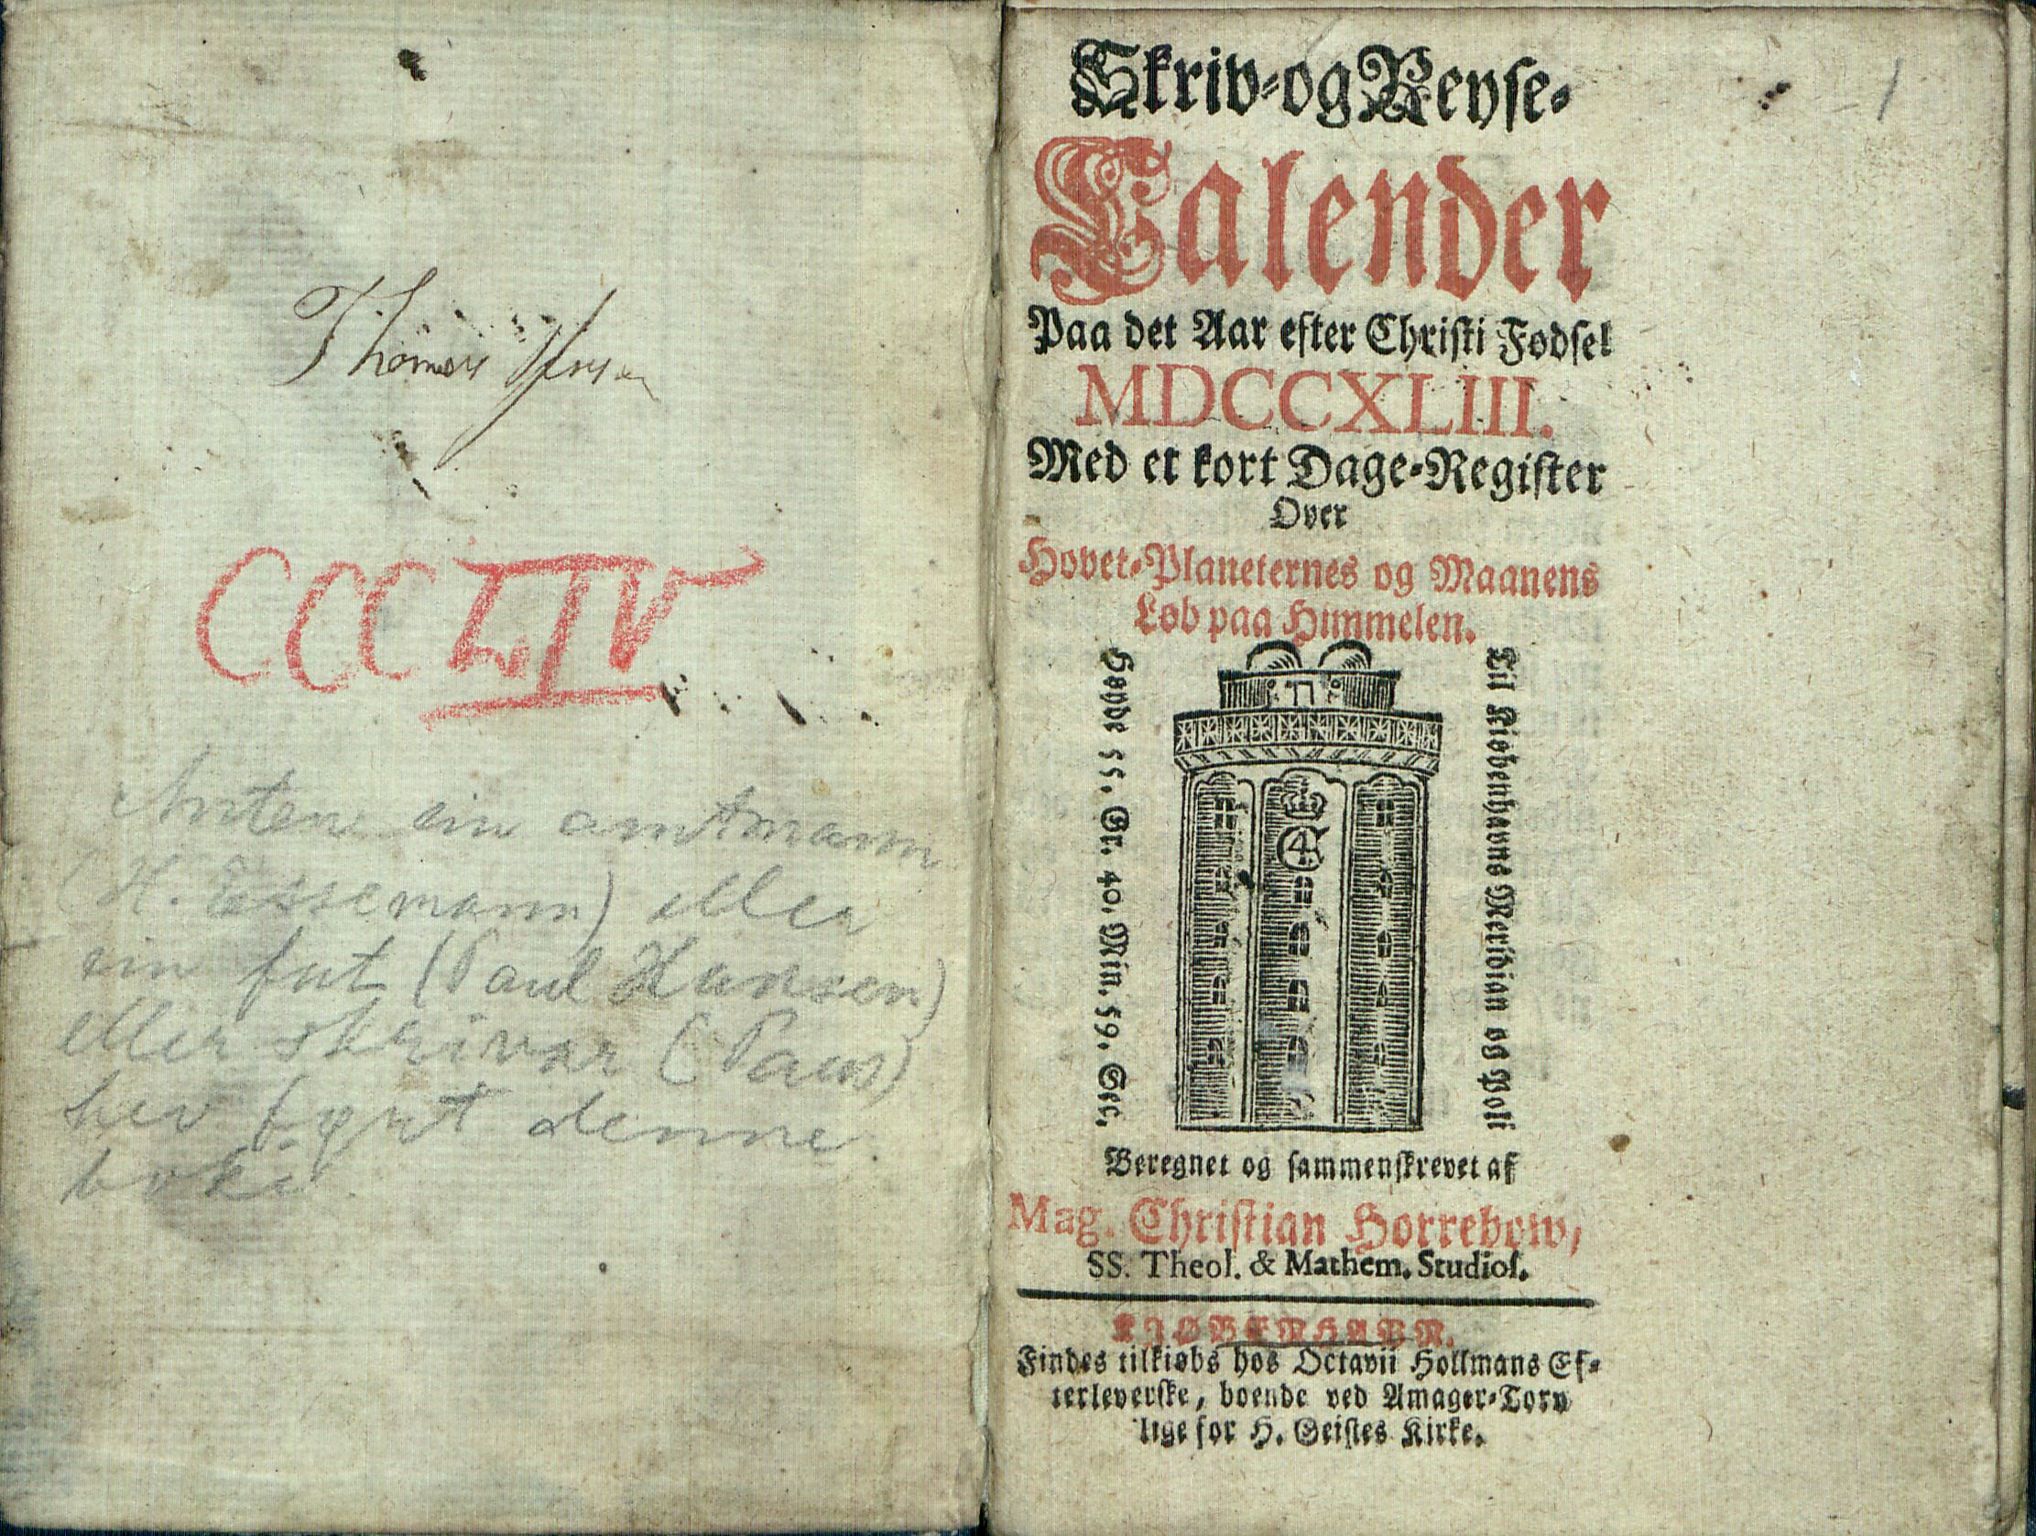 Thomas
CCCLIV
Anten ein amtmann
(H. Essemann) eller
ein fut (Paul Hansen)
eller skrivar (Paus)
hev ført denne
boki.
1
Skriv-og Reyse-
Calender
Paa det Aar efter Christi Fødsel
MDCCXLIII.
Med et kort Dage-Register
Over
Hovet-Planeternes og Maanens
Løb paa Himmelen.
Høyde 55. Gr. 40. Min. 59. Sec.
Til Kiøbenhavns Meridian og Poli
C4
Beregnet og sammenskrevet af
Mag. Christian Horrebow,
SS. Theol. & Mathem. Studios.
KIØBENHAVN.
Findes tilkiøbs hos Octavii Hollmans Ef-
terleverske, boende ved Amager-Torv
lige for H. Geistes Kirke.